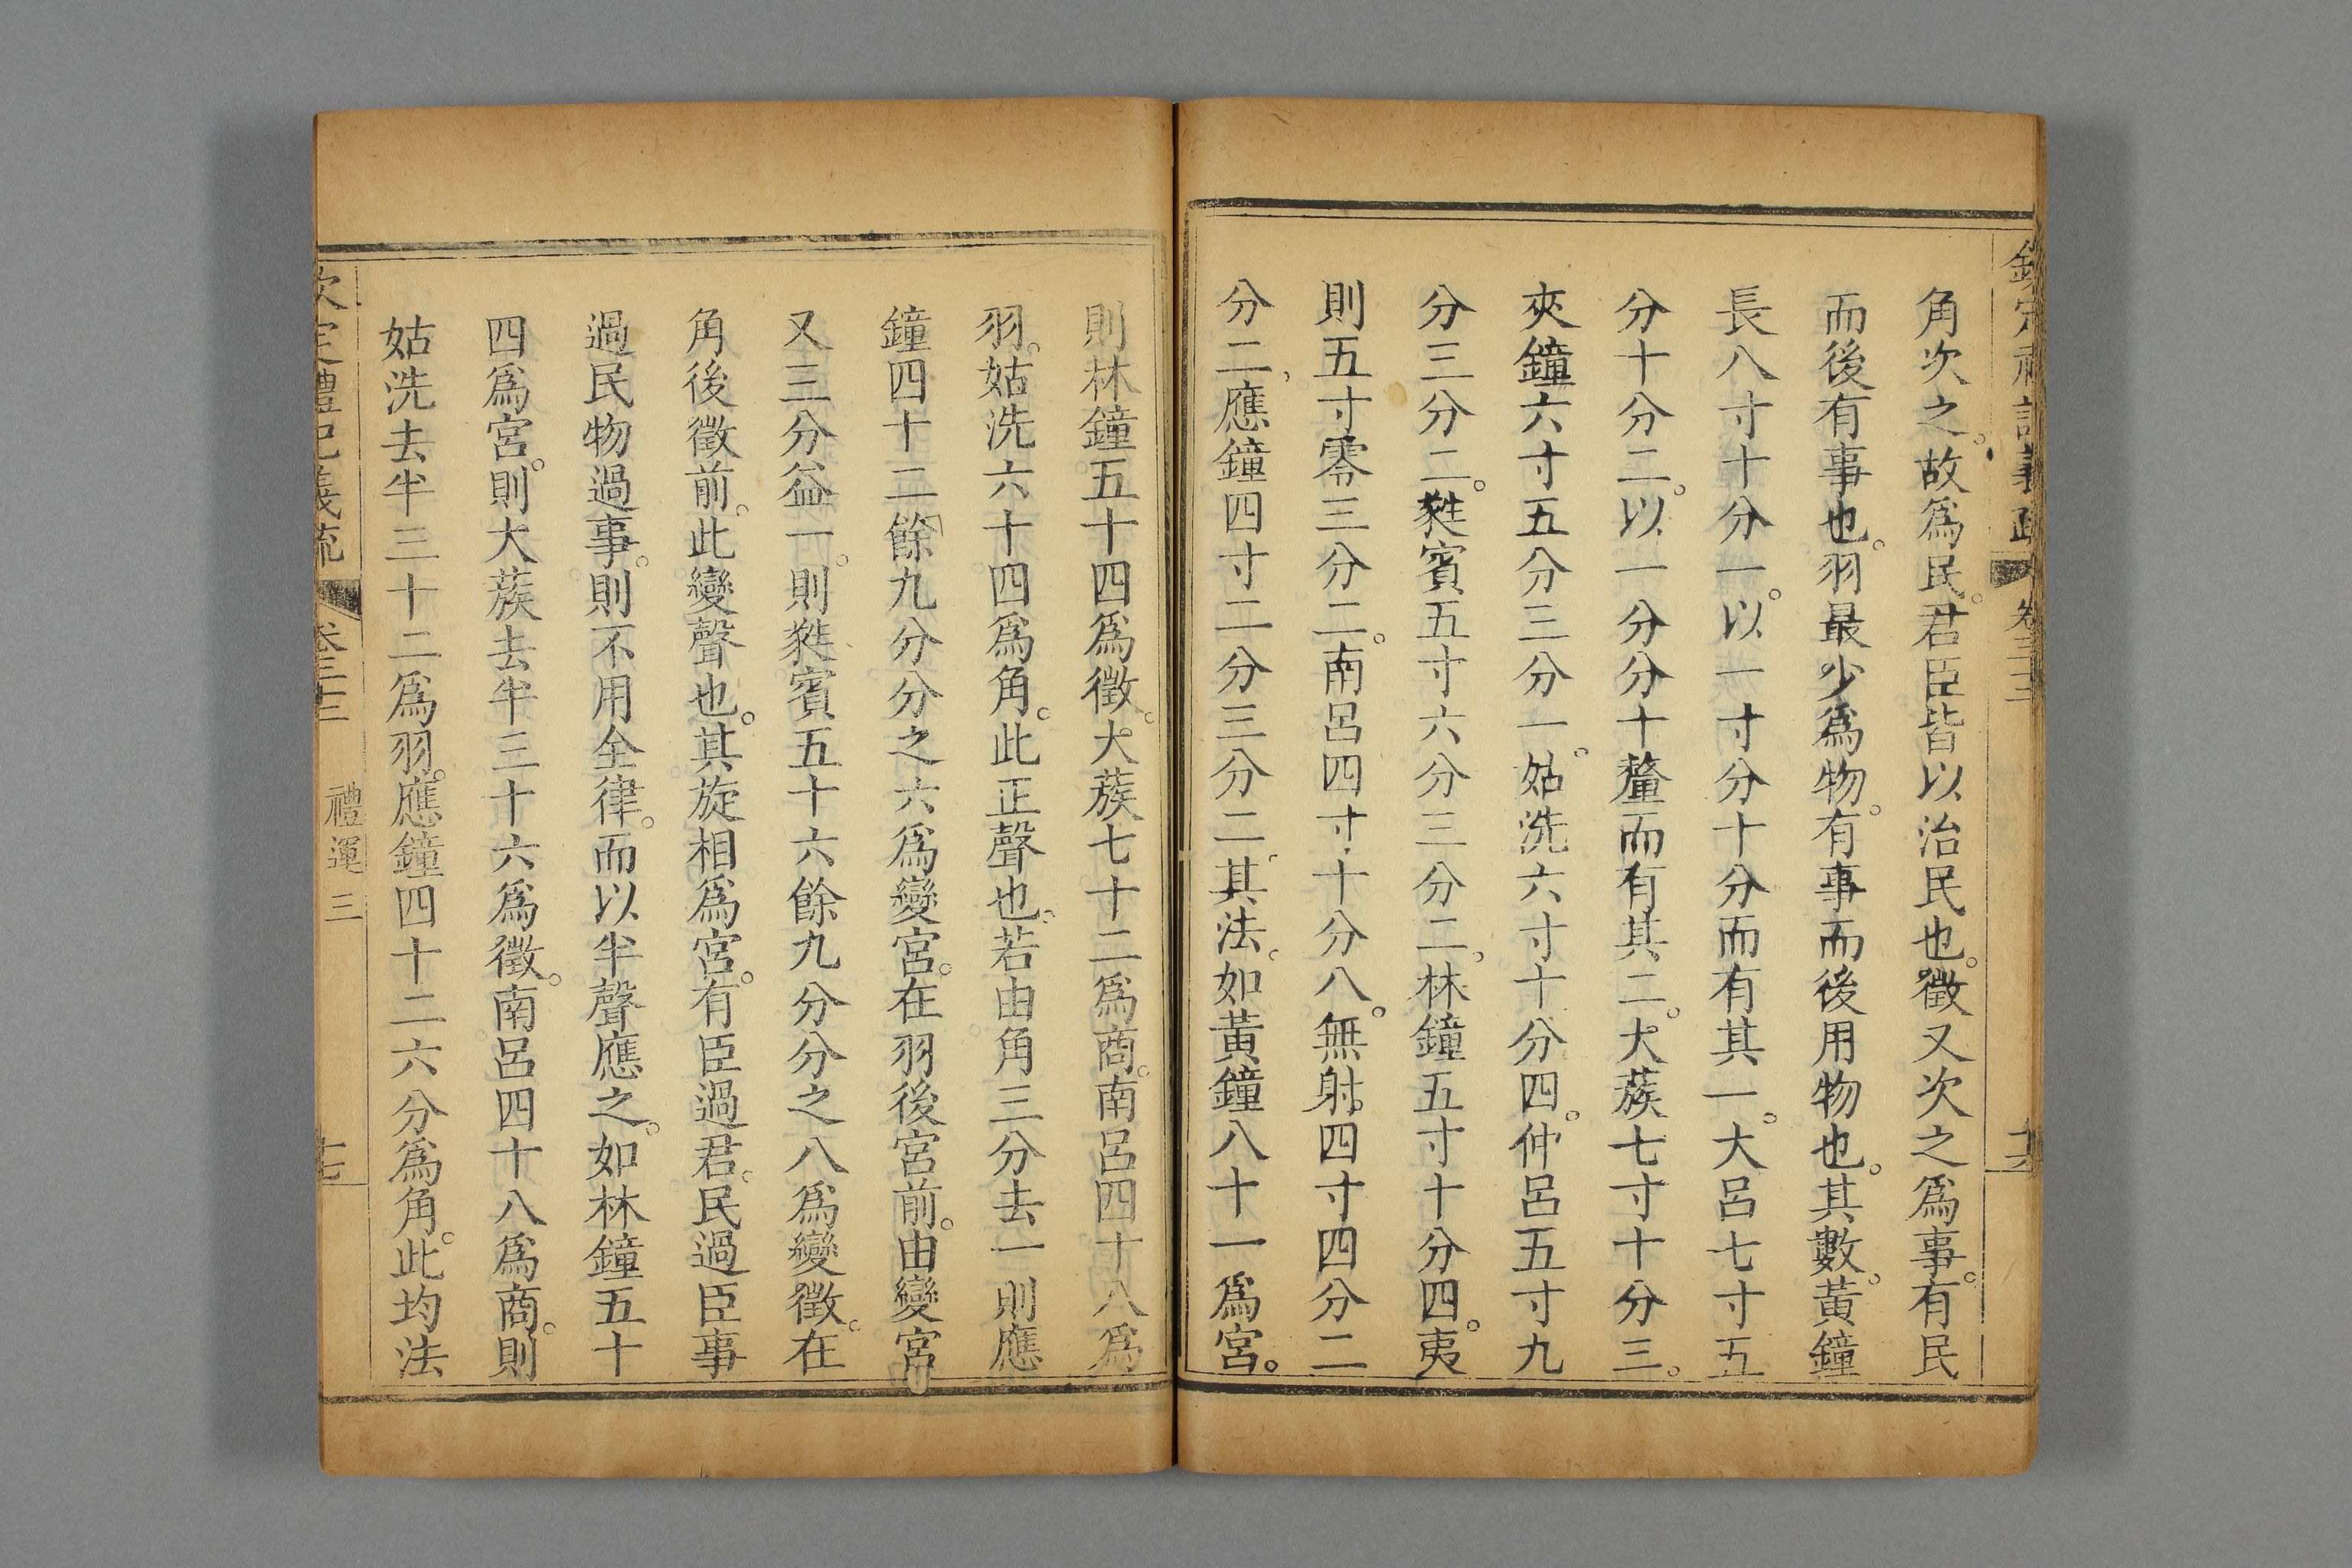 角次之。故爲民。君臣皆以治民也。徵又次之爲事。有民
而後有事也。羽最少爲物。有事而後用物也。其數。黃鐘
長八寸十分一。以一寸分十分而有其一。大呂七寸五
分十分二。以一分分十釐而有其二。大蔟七寸十分三。
夾鐘六寸五分三分一。姑洗六寸十分四。仲呂五寸九
分三分二。蕤賓五寸六分三分二。林鐘五寸十分四。夷
則五寸零三分二。南呂四寸十分八。無射。四寸四分二
分二。應鐘四寸二分三分二。其法。如黃鐘八十一爲宮。
則林鐘五十四爲徵。大蔟七十二爲商。南呂四十八爲
羽。姑洗六十四爲角。此正聲也。若由角三分去一則應
鐘四十二餘九分分之六爲變宮。在羽後宮前。由變宮
又三分益一。則蕤賓五十六餘九分分之八爲變徵。在
角後徵前。此變聲也。其旋相爲宮。有臣過君。民過臣事
過民物過事。則不用全律。而以半聲應之。如林鐘五十
四爲宮。則大蔟去半三十六爲徵。南呂四十八爲商。則
姑洗去半三十二爲羽。應鐘四十二六分爲角。此均法
欽定禮記義疏 卷三十三 禮運三 十七